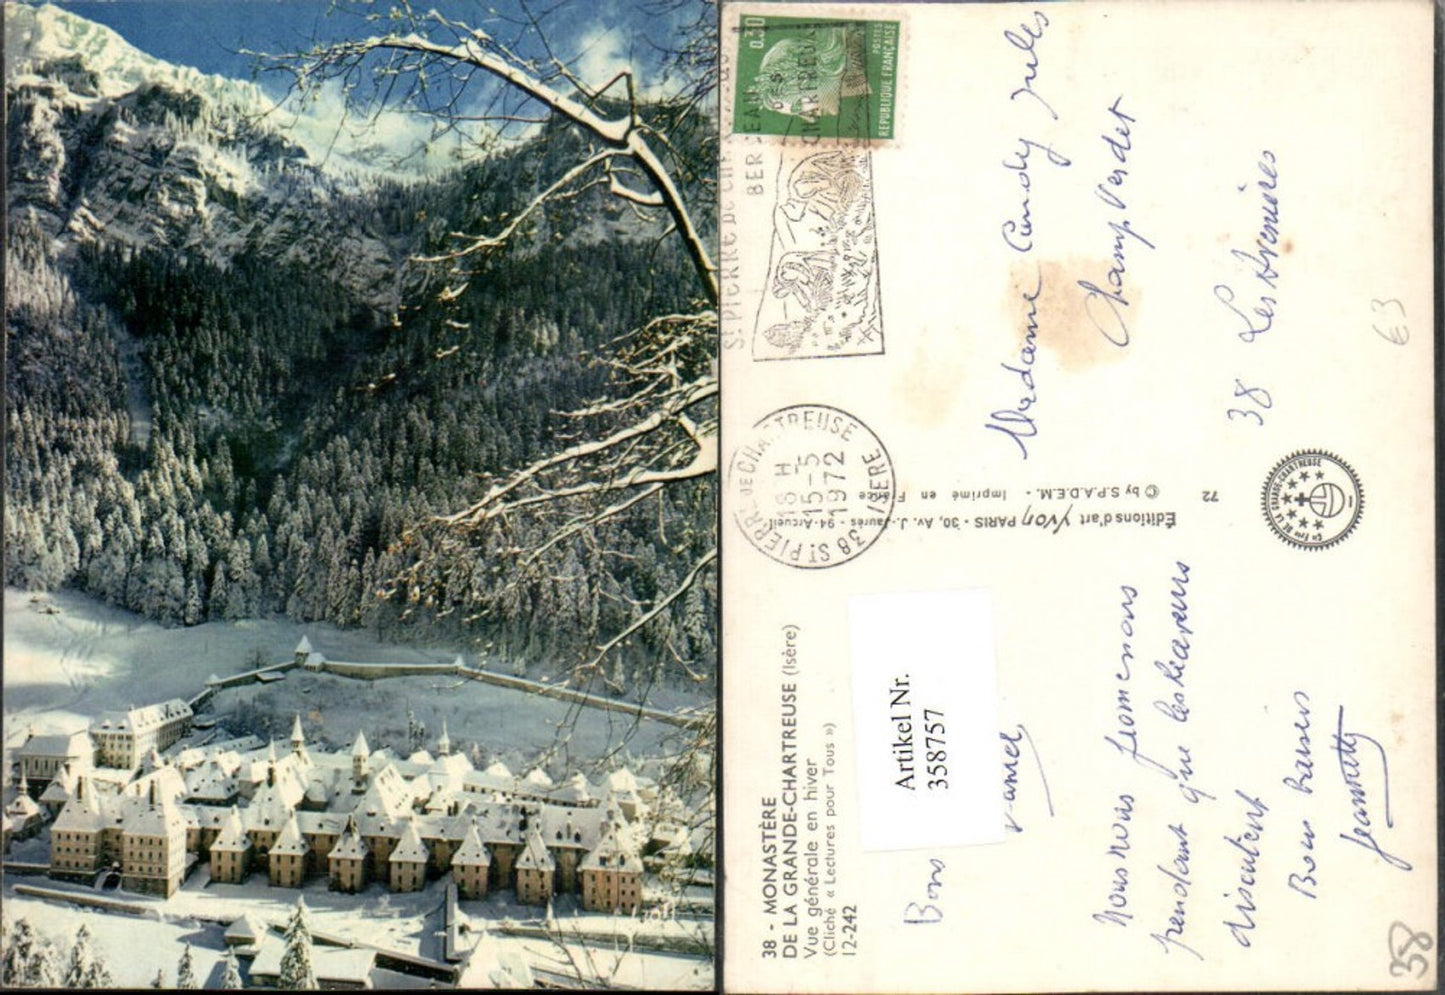 38 - MONASTÈRE
DE LA GRANDE-CHARTREUSE (Isère)
Vue générale en hiver
(Cliché « Lectures pour Tous »)
12-242
Artikel Nr.
358757
Bons
Nous nous promenons
pendant que les
discutent
Bons baisers
Jeannette
Éditions d'art Yvon PARIS - 30, Av. J.-Jaurès - 94-Arcueil
© by S.P.A.D.E.M. - Imprimé en France
72
Madame Jules
Champ Verdet
38 Les Avenières
0.30
POSTES
REPUBLIQUE FRANÇAISE
ST PIERRE DE
BERCEAU DES
CHARTREUX
38 ST PIERRE DE CHARTREUSE
16 H
15-5
1972
ISERE
€3
38